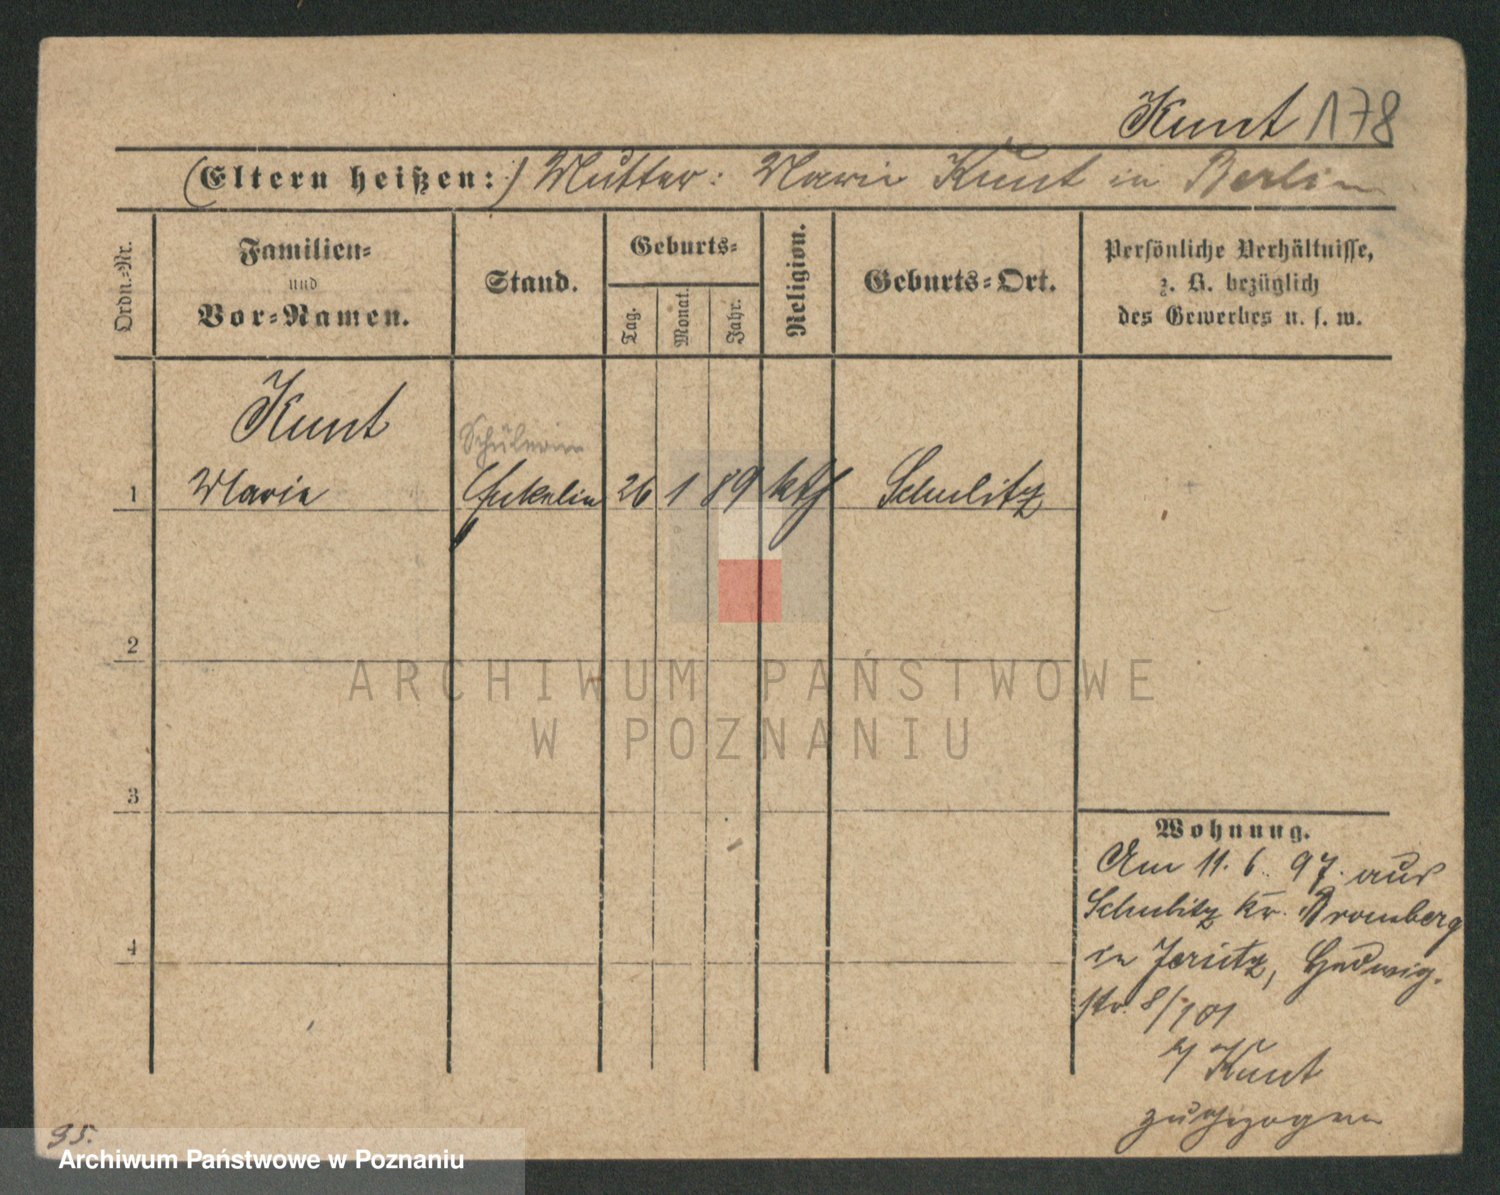 Kunt 178
(Eltern heißen:) Mutter: Marie Kunt in Berlin
Ordn.-Nr.
Familien-
und
Vor-Namen.
Stand.
Geburts-
Tag.
Monat.
Jahr.
Religion.
Geburts-Ort.
Persönliche Verhältnisse,
z. B. bezüglich
des Gewerbes u. s. w.
Kunt
Schülerin
1 Marie Enkelin 26 1 89 kth Schulitz
2
ARCHIWUM PAŃSTWOWE
W POZNANIU
3
Wohnung.
Am 11. 6. 97. aus
Schulitz Kr. Bromberg
4
in Jersitz, Hedwig-
str. 8/101
b/ Kunt
zugezogen
95.
Archiwum Państwowe w Poznaniu